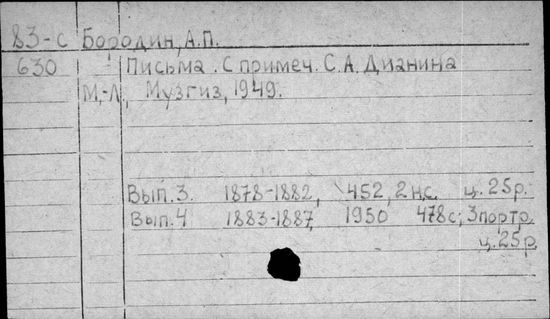 83-с Бородин, А.П.
630 Письма. С примеч. С.А. Дианина
М.-Л., Музгиз, 1949.
Вып. 3. 1878-1882, 452, 2 нс. ц. 25р.
Вып. 4 1883-1887, 1950 478с; 3 портр.
ц. 25р.